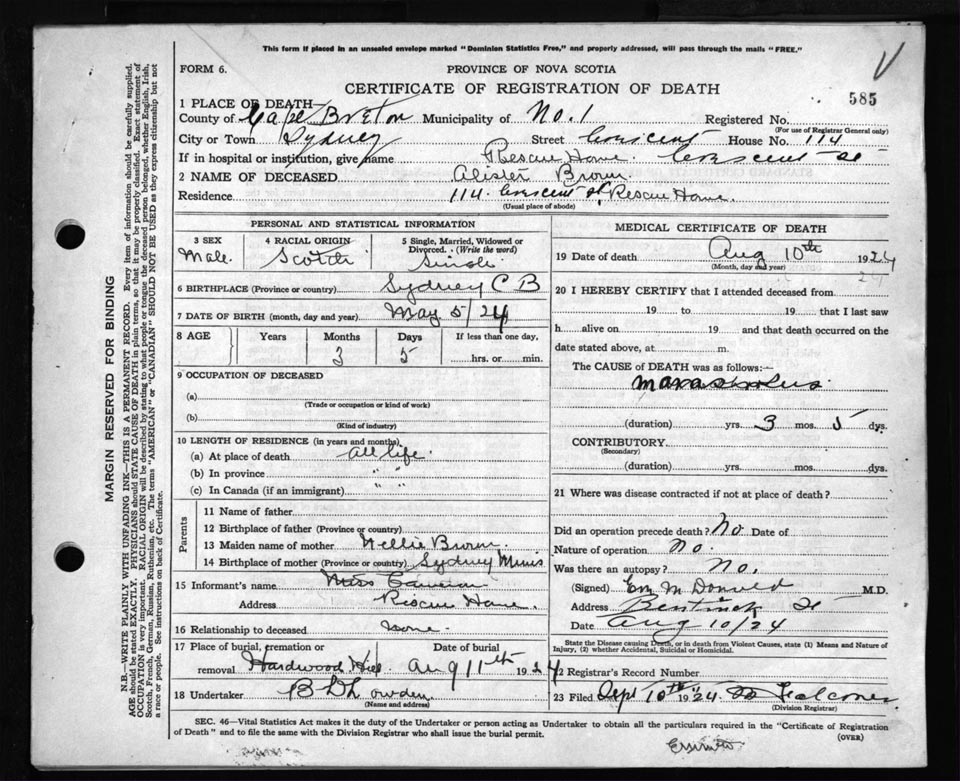 This form if placed in an unsealed envelope marked "Dominion Statistics Free," and properly addressed, will pass through the mails "FREE."
FORM 6. PROVINCE OF NOVA SCOTIA
CERTIFICATE OF REGISTRATION OF DEATH
585
1 PLACE OF DEATH
County of Cape Breton Municipality of No. 1 Registered No.
(For use of Registrar General only)
City or Town Sydney Street Crescent House No. 114
If in hospital or institution, give name Rescue Home. Crescent St
2 NAME OF DECEASED Alister Brown.
Residence 114. Crescent St. Rescue Home.
(Usual place of abode)
PERSONAL AND STATISTICAL INFORMATION
3 SEX 4 RACIAL ORIGIN 5 Single, Married, Widowed or Divorced. (Write the word)
Male. Scotch Single
6 BIRTHPLACE (Province or country) Sydney C B
7 DATE OF BIRTH (month, day and year) May 5/24
8 AGE Years Months Days If less than one day,
3 5 hrs. or min.
9 OCCUPATION OF DECEASED
(a)
(Trade or occupation or kind of work)
(b)
(Kind of industry)
10 LENGTH OF RESIDENCE (in years and months)
(a) At place of death all life.
(b) In province " "
(c) In Canada (if an immigrant) " "
Parents
11 Name of father
12 Birthplace of father (Province or country)
13 Maiden name of mother Nellie Brown.
14 Birthplace of mother (Province or country) Sydney Mines
15 Informant's name Miss Cameron
Address Rescue Home.
16 Relationship to deceased none.
17 Place of burial, cremation or removal Date of burial
Hardwood Hill Aug 11th 1924
18 Undertaker
(Name and address)
MEDICAL CERTIFICATE OF DEATH
19 Date of death Aug 10th 1924
(Month, day and year) 24
20 I HEREBY CERTIFY that I attended deceased from
19 to 19 that I last saw
h alive on 19 and that death occurred on
date stated above, at m.
The CAUSE of DEATH was as follows:
(duration) yrs. 3 mos. 5 dys.
CONTRIBUTORY
(Secondary)
(duration) yrs. mos. dys.
21 Where was disease contracted if not at place of death?
Did an operation precede death? No Date of
Nature of operation No.
Was there an autopsy? No.
(Signed) McDonald M.D.
Address Bentinck St
Date Aug 10/24
State the Disease causing Death, or in death from Violent Causes, state (1) Means and Nature of
Injury, (2) whether Accidental, Suicidal or Homicidal.
22 Registrar's Record Number
23 Filed Sept 10th 1924 Falconer
(Division Registrar)
SEC. 46—Vital Statistics Act makes it the duty of the Undertaker or person acting as Undertaker to obtain all the particulars required in the "Certificate of Registration
of Death" and to file the same with the Division Registrar who shall issue the burial permit.
(OVER)
MARGIN RESERVED FOR BINDING
N.B.—WRITE PLAINLY WITH UNFADING INK—THIS IS A PERMANENT RECORD. Every item of information should be carefully supplied.
AGE should be stated EXACTLY. PHYSICIANS should STATE CAUSE OF DEATH in plain terms, so that it may be properly classified. Exact statement of
OCCUPATION is very important. RACIAL ORIGIN will be described by stating to what people or tongue the deceased person belonged, whether English, Irish,
Scotch, French, German, Russian, Ruthenian, etc. The terms "AMERICAN" or "CANADIAN" SHOULD NOT BE USED as they express citizenship but not
a race or people. See instructions on back of Certificate.